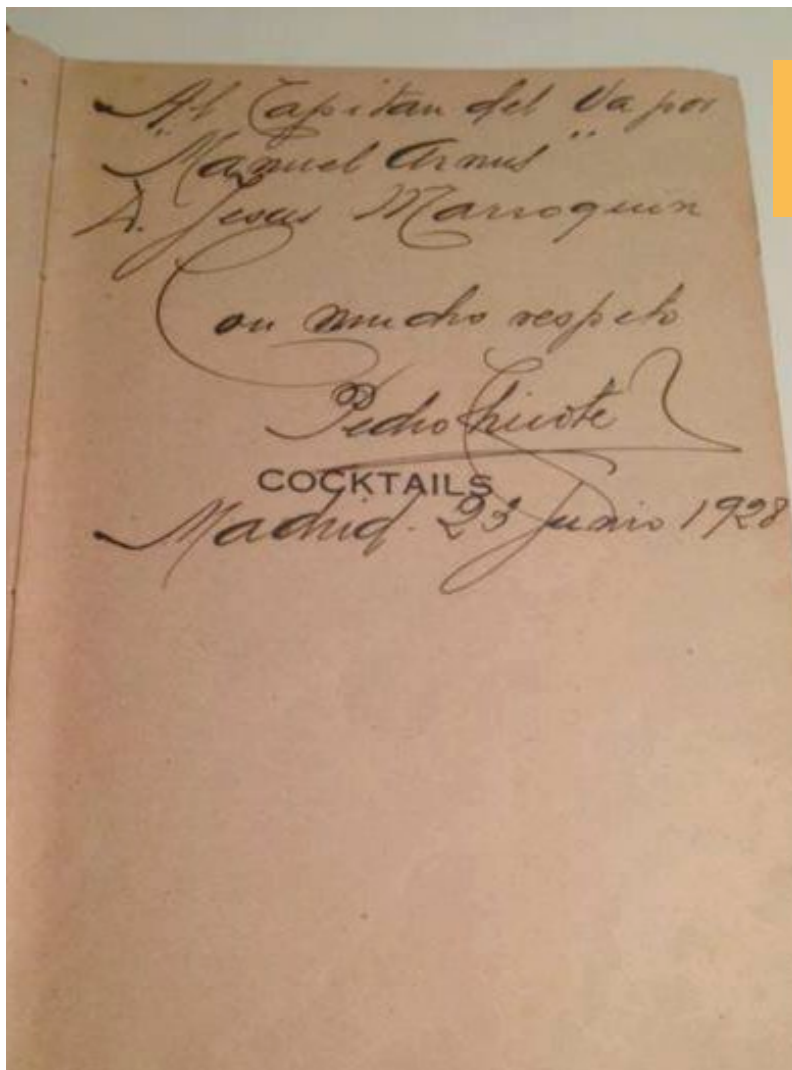 Al Capitan del Vapor
"Manuel Arnus"
D. Jesus Marroquin
Con mucho respeto
Pedro Chicote
COCKTAILS
Madrid. 23 Junio 1928